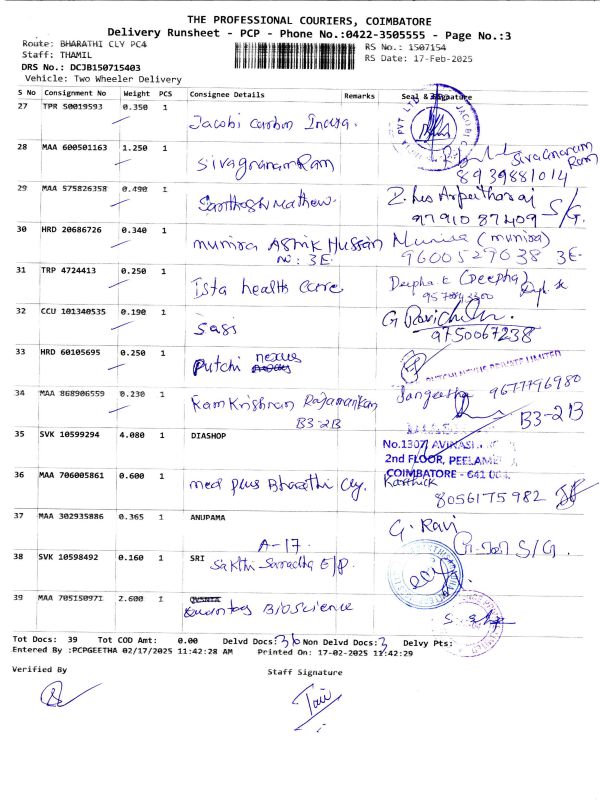 THE PROFESSIONAL COURIERS, COIMBATORE
Delivery Runsheet - PCP - Phone No.:0422-3505555 - Page No.:3
Route: BHARATHI CLY PC4
RS No.: 1507154
Staff: THAMIL
RS Date: 17-Feb-2025
DRS No.: DCJB150715403
Vehicle: Two Wheeler Delivery
S No Consignment No Weight PCS Consignee Details Remarks Seal & Signature
27 TPR 50019593 0.350 1
Jacobi Carbon India.
28 MAA 600501163 1.250 1
Sivagnanam Ram
Sivagnanam Ram
8939881014
29 MAA 575826358 0.490 1
Santhosh Mathew.
97910 87409 S/G.
30 HRD 20686726 0.340 1
munira Ashik Hussain
Munira (munira)
No: 3E
9600529038 3E
31 TRP 4724413 0.250 1
Ista health care
Deepha. E (Deepha)
32 CCU 101340535 0.190 1
Sasi
G. Ravichandran
9750067238
33 HRD 60105695 0.250 1
Putchi nexus
PRIVATE LIMITED
34 MAA 868906559 0.230 1
Sangeetha 9677796980
Ramkrishnan Rajamanikam
B3-2B
B3-2B
35 SVK 10599294 4.080 1 DIASHOP
No.1307, AVINASHI
2nd FLOOR, PEELAMEDU,
COIMBATORE - 641 004.
36 MAA 706005861 0.600 1
med plus Bharathi Cly.
Karthick
8056175982
37 MAA 302935886 0.365 1 ANUPAMA
G. Ravi
A-17.
S/G.
38 SVK 10598492 0.160 1 SRI
Sakthi Saradha E/P.
39 MAA 705150971 2.600 1
BioScience
Tot Docs: 39 Tot COD Amt: 0.00 Delvd Docs: 36 Non Delvd Docs: 3 Delvy Pts:
Entered By :PCPGEETHA 02/17/2025 11:42:28 AM Printed On: 17-02-2025 11:42:29
Verified By
Staff Signature